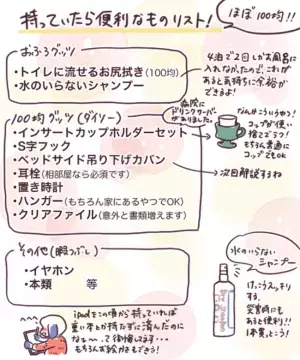 持っていたら便利なものリスト!
ほぼ100均!!
おふろグッズ
・トイレに流せるお尻拭き(100均)
・水のいらないシャンプー
4泊で2回しかお風呂に
入れなかったので、これが
あると気持ちに余裕が
できるよ!
100均グッズ(ダイソー)
・インサートカップホルダーセット
・S字フック
・ベッドサイド吊り下げカバン
・耳栓(相部屋なら必須です)
・置き時計
・ハンガー(もちろん家にあるやつでOK)
・クリアファイル(意外と書類増えます)
病院に
ドリンクサーバー
がありました。
なんかこういうやつ!
コップが使い
捨てどうぞ!
もちろん普通に
コップでもOK
次回解説するね
その他(暇つぶし)
・イヤホン
・本類 等
ipadをこの頃から持っていれば
重い本とか持たずに済んだのに
なぁ〜、って後悔してます…
もちろんお絵かきもできる!
水のいらない
シャンプー
けっこうスッキリ
する。
災害時にも
あると便利!!
1本買っとこう!